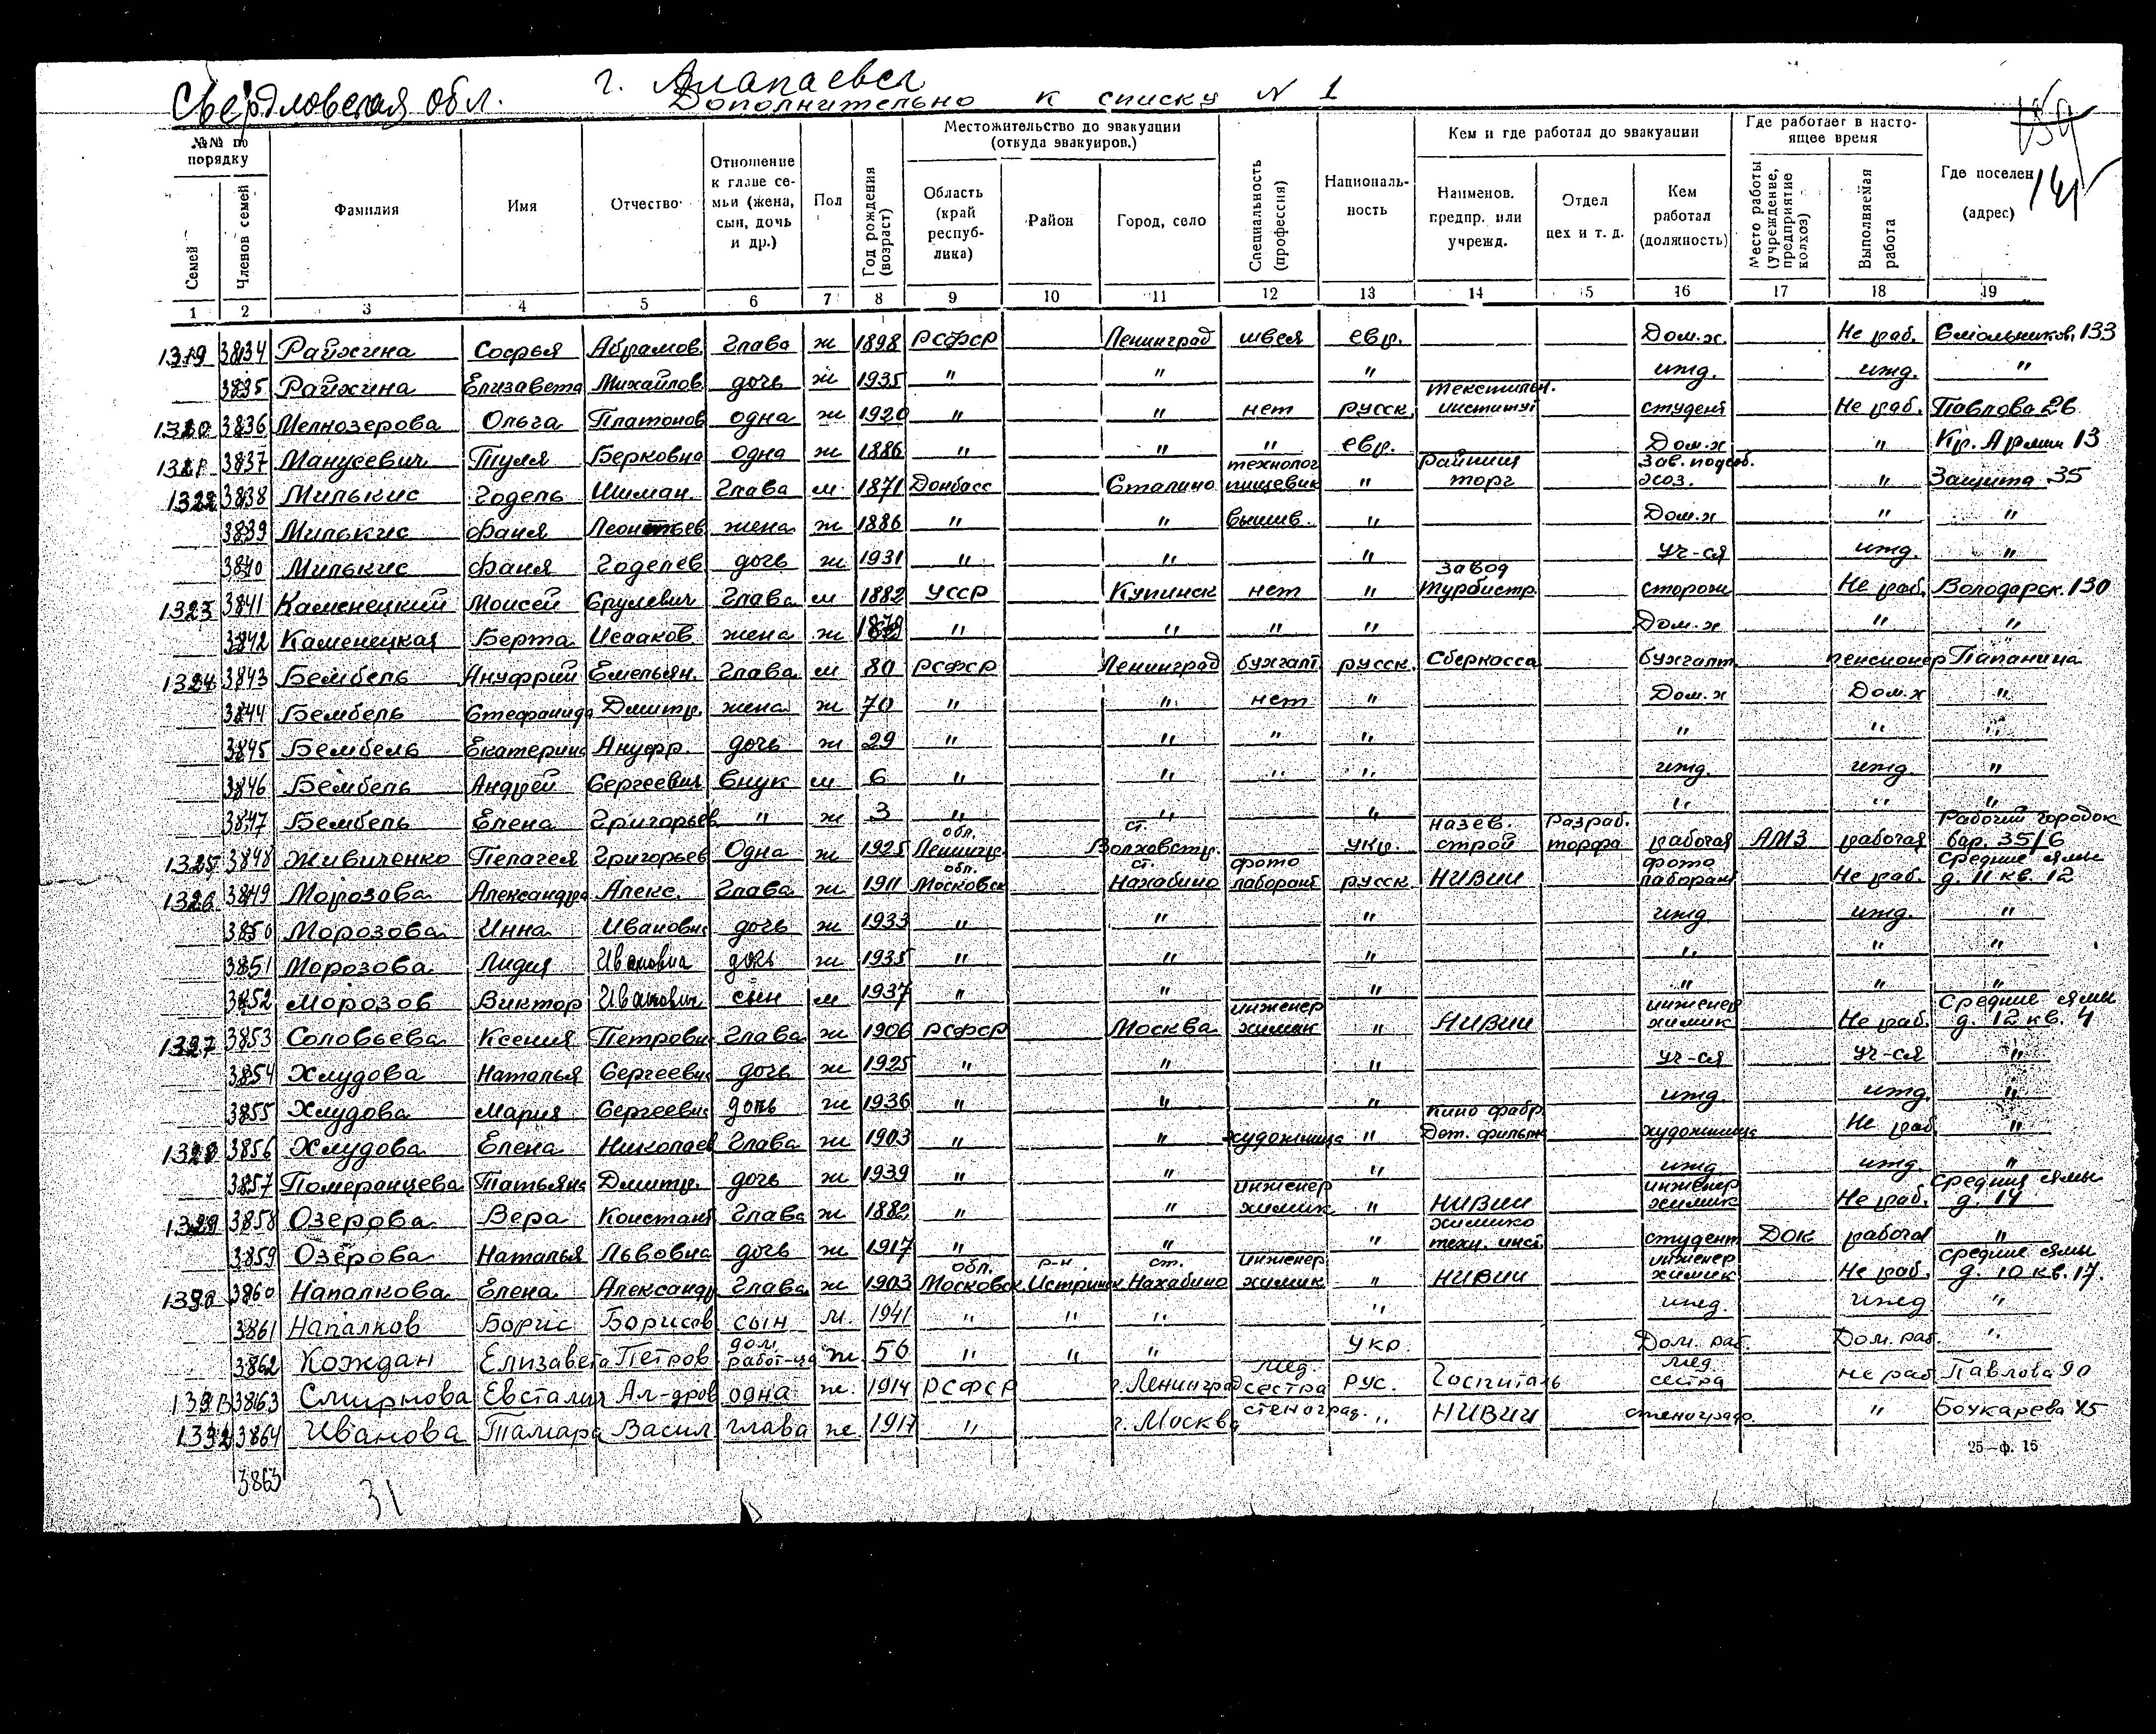 Свердловская обл. г. Алапаевск
Дополнительно к списку № 1
159
141
№№ по порядку
Семей
Членов семей
Фамилия
Имя
Отчество
Отношение к главе семьи (жена, сын, дочь и др.)
Пол
Год рождения (возраст)
Местожительство до эвакуации (откуда эвакуиров.)
Область (край республика)
Район
Город, село
Специальность (профессия)
Националь-ность
Кем и где работал до эвакуации
Наименов. предпр. или учрежд.
Отдел цех и т. д.
Кем работал (должность)
Где работает в насто-ящее время
Место работы (учреждение, предприятие колхоз)
Выполняемая работа
Где поселен (адрес)
1 2 3 4 5 6 7 8 9 10 11 12 13 14 15 16 17 18 19
1319 3834 Райхина Софья Абрамов. Глава ж 1898 РСФСР Ленинград швея евр. Дом.х. Не раб. Смольников. 133
3835 Райхина Елизавета Михайлов. дочь ж 1935 " " " ижд. ижд. "
1320 3836 Мелкозерова Ольга Платонов одна ж 1920 " " нет русск. текстильн. институт студент Не раб. Павлова 26
1321 3837 Манусевич Туля Берковна одна ж 1886 " " " евр. Дом.х " Кр. Армии 13
1322 3838 Милькис Годель Шиман. Глава м 1871 Донбасс Сталино технолог пищевик " райпищ торг Зав. подсоб. хоз. " Защита 35
3839 Милькис Фаня Леонтьев. жена ж 1886 " " вышив. " Дом.х " "
3840 Милькис Фаня Годелев дочь ж 1931 " " " уч-ся ижд. "
1323 3841 Каменецкий Моисей Срулевич Глава м 1882 УССР Купинск нет " завод Турбистр. сторож Не раб. Володарск. 130
3842 Каменецкая Берта Исааков. жена ж " " " " Дом.х " "
1324 3843 Бембель Ануфрий Емельян. Глава м 80 РСФСР Ленинград бухгалт. русск. Сберкасса бухгалт. пенсионер Папанина
3844 Бембель Стефанида Дмитр. жена ж 70 " " нет " Дом.х Дом.х "
3845 Бембель Екатерина Ануфр. дочь ж 29 " " " " " " "
3846 Бембель Андрей Сергеевич внук м 6 " " " " ижд. ижд. "
3847 Бембель Елена Григорьев " ж 3 " " " " " "
1325 3848 Живиченко Пелагея Григорьев Одна ж 1925 Ленингр. обл. ст. Волховстр. укр. назев. строй Разраб. торфа рабочая АМЗ рабочая Рабочий городок бар. 35/6
1326 3849 Морозова Александра Алекс. Глава ж 1911 Московск обл. ст. Нахабино фото лаборант русск. НИВИИ фото лаборант Не раб. Средние ямы д. 11 кв. 12
3850 Морозова Инна Ивановна дочь ж 1933 " " " ижд. ижд. "
3851 Морозова Лидия Ивановна дочь ж 1935 " " " " " "
3852 Морозов Виктор Иванович сын м 1937 " " " " " "
1327 3853 Соловьева Ксения Петровна Глава ж 1906 РСФСР Москва инженер химик " НИВИИ инженер химик Не раб. Средние ямы д. 12 кв. 4
3854 Хлудова Наталья Сергеевна дочь ж 1925 " " " уч-ся уч-ся "
3855 Хлудова Мария Сергеевна дочь ж 1936 " " " ижд. ижд. "
1328 3856 Хлудова Елена Николаев Глава ж 1903 " " художница " кино фабр. Дет. фильм художница Не раб. "
3857 Померанцева Татьяна Дмитр. дочь ж 1939 " " " ижд. ижд. "
1329 3858 Озерова Вера Констант Глава ж 1882 " " инженер химик " НИВИИ инженер химик Не раб. Средние ямы д. 14
3859 Озерова Наталья Львовна дочь ж 1917 " " " химико техн. инст. студент ДОК рабочая "
1330 3860 Напалкова Елена Александр. Глава ж 1903 Московск. обл. Истринск. р-н. ст. Нахабино инженер химик " НИВИИ инженер химик Не раб. Средние ямы д. 10 кв. 17.
3861 Напалков Борис Борисов сын м. 1941 " " " " ижд. ижд. "
3862 Кождан Елизавета Петров дом. работ-ца ж. 56 " " " укр. Дом. раб. Дом. раб. "
1331 3863 Смирнова Евсталия Ал-дров одна ж. 1914 РСФСР г. Ленинград мед. сестра рус. Госпиталь мед. сестра не раб. Павлова 90
1332 3864 Иванова Тамара Васил. глава ж 1917 " г. Москва стеноград. " НИВИИ стенограф. " Бочкарева 45
25—ф. 15
3863
31